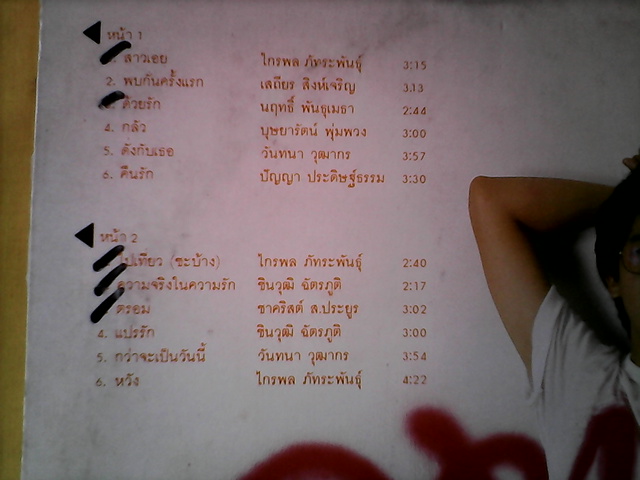 หน้า 1
สาวเอย ไกรพล ภัทระพันธุ์ 3:15
2. พบกันครั้งแรก เสถียร สิงห์เจริญ 3.13
ด้วยรัก นฤทธิ์ พันธุเมธา 2:44
4. กลัว บุษยารัตน์ พุ่มพวง 3:00
5. ดังกับเธอ วันทนา วุฒากร 3:57
6. คืนรัก ปัญญา ประดิษฐ์ธรรม 3:30
หน้า 2
ไปเที่ยว (ซะบ้าง) ไกรพล ภัทระพันธุ์ 2:40
ความจริงในความรัก ชินวุฒิ ฉัตรภูติ 2:17
ตรอม ซาคริสต์ ส.ประยูร 3:02
4. แปรรัก ชินวุฒิ ฉัตรภูติ 3:00
5. กว่าจะเป็นวันนี้ วันทนา วุฒากร 3:54
6. หวัง ไกรพล ภัทระพันธุ์ 4:22